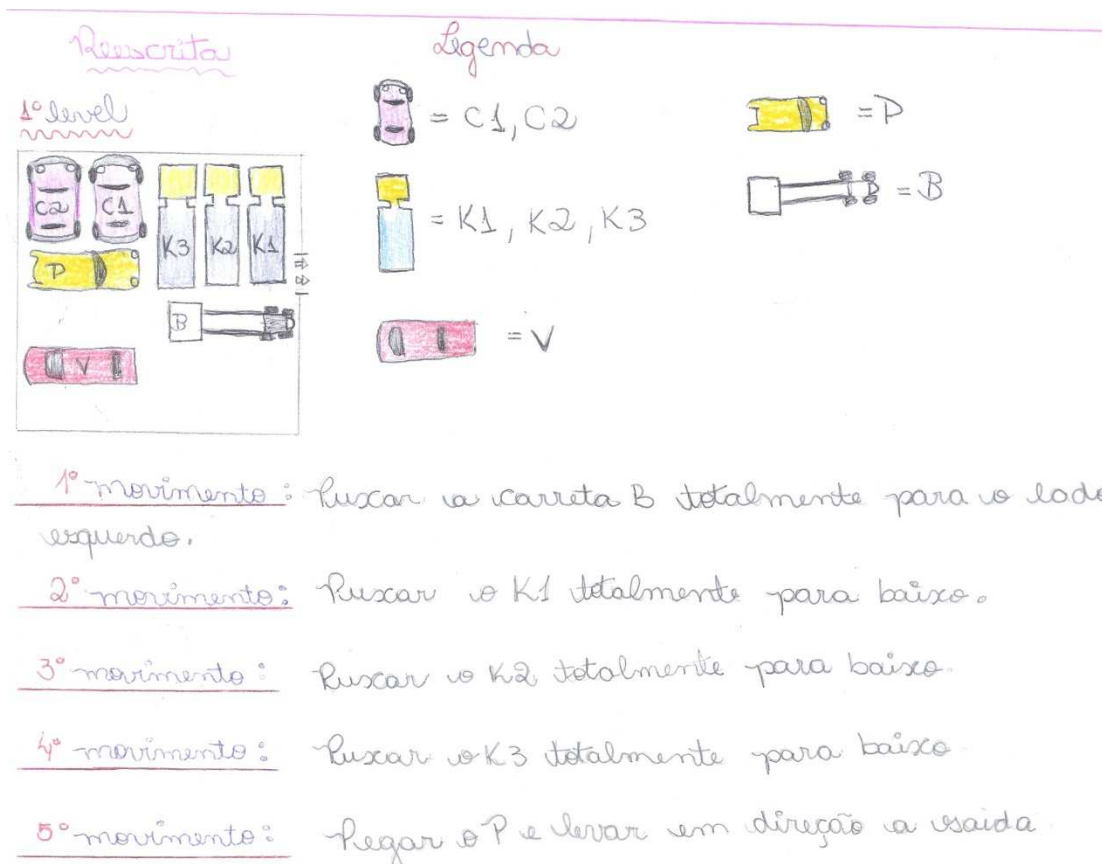 Reescrita
Legenda
1º level
= C1, C2
= P
C2 C1 K3 K2 K1
= K1, K2, K3
= B
P
B
V
= V
1º movimento: Puxar a carreta B totalmente para o lado
esquerdo.
2º movimento: Puxar o K1 totalmente para baixo.
3º movimento: Puxar o K2 totalmente para baixo.
4º movimento: Puxar o K3 totalmente para baixo
5º movimento: Pegar o P e levar em direção a saida